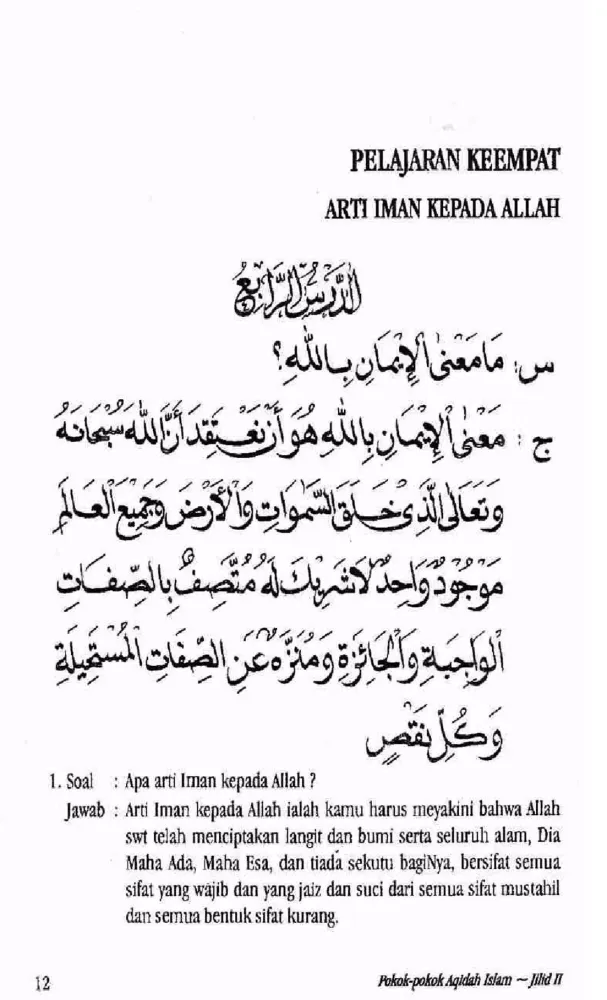 PELAJARAN KEEMPAT
ARTI IMAN KEPADA ALLAH
الدَّرْسُ الرَّابِعُ
س : مَا مَعْنَى الْإِيْمَانِ بِاللهِ؟
ج : مَعْنَى الْإِيْمَانِ بِاللهِ هُوَ أَنْ نَعْتَقِدَ أَنَّ اللهَ سُبْحَانَهُ
وَتَعَالَى الَّذِيْ خَلَقَ السَّمٰوَاتِ وَالْأَرْضَ وَجَمِيْعَ الْعَالَمِ
مَوْجُوْدٌ وَاحِدٌ لَا شَرِيْكَ لَهُ مُتَّصِفٌ بِالصِّفَاتِ
الْوَاجِبَةِ وَالْجَائِزَةِ وَمُنَزَّهٌ عَنِ الصِّفَاتِ الْمُسْتَحِيْلَةِ
وَكُلِّ نَقْصٍ
1. Soal : Apa arti Iman kepada Allah ?
Jawab : Arti Iman kepada Allah ialah kamu harus meyakini bahwa Allah
swt telah menciptakan langit dan bumi serta seluruh alam, Dia
Maha Ada, Maha Esa, dan tiada sekutu bagiNya, bersifat semua
sifat yang wajib dan yang jaiz dan suci dari semua sifat mustahil
dan semua bentuk sifat kurang.
12
Pokok-pokok Aqidah Islam — Jilid II